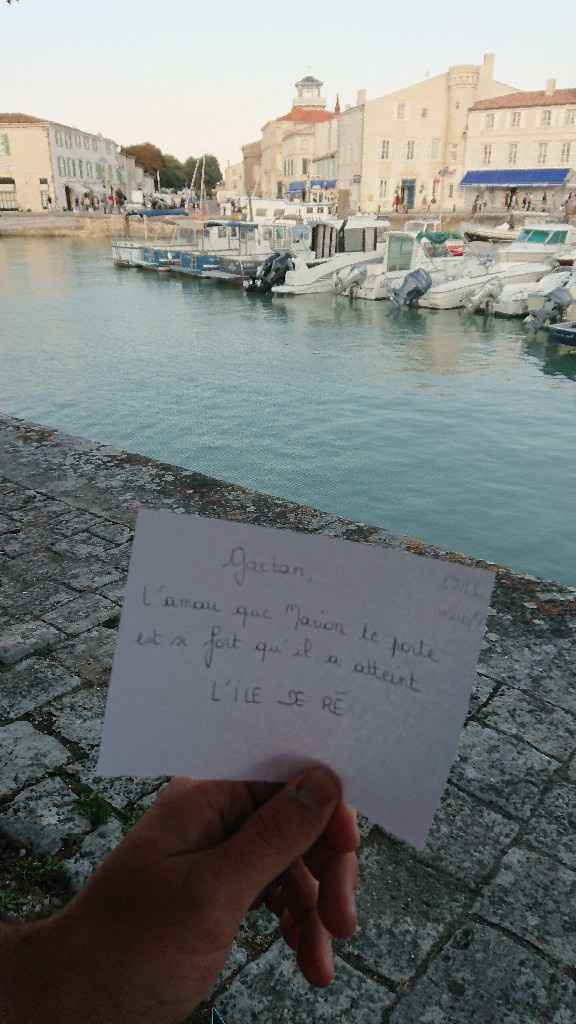 Gaetan,
L'amour que Marion te porte
est si fort qu'il a atteint
L'ÎLE DE RÉ